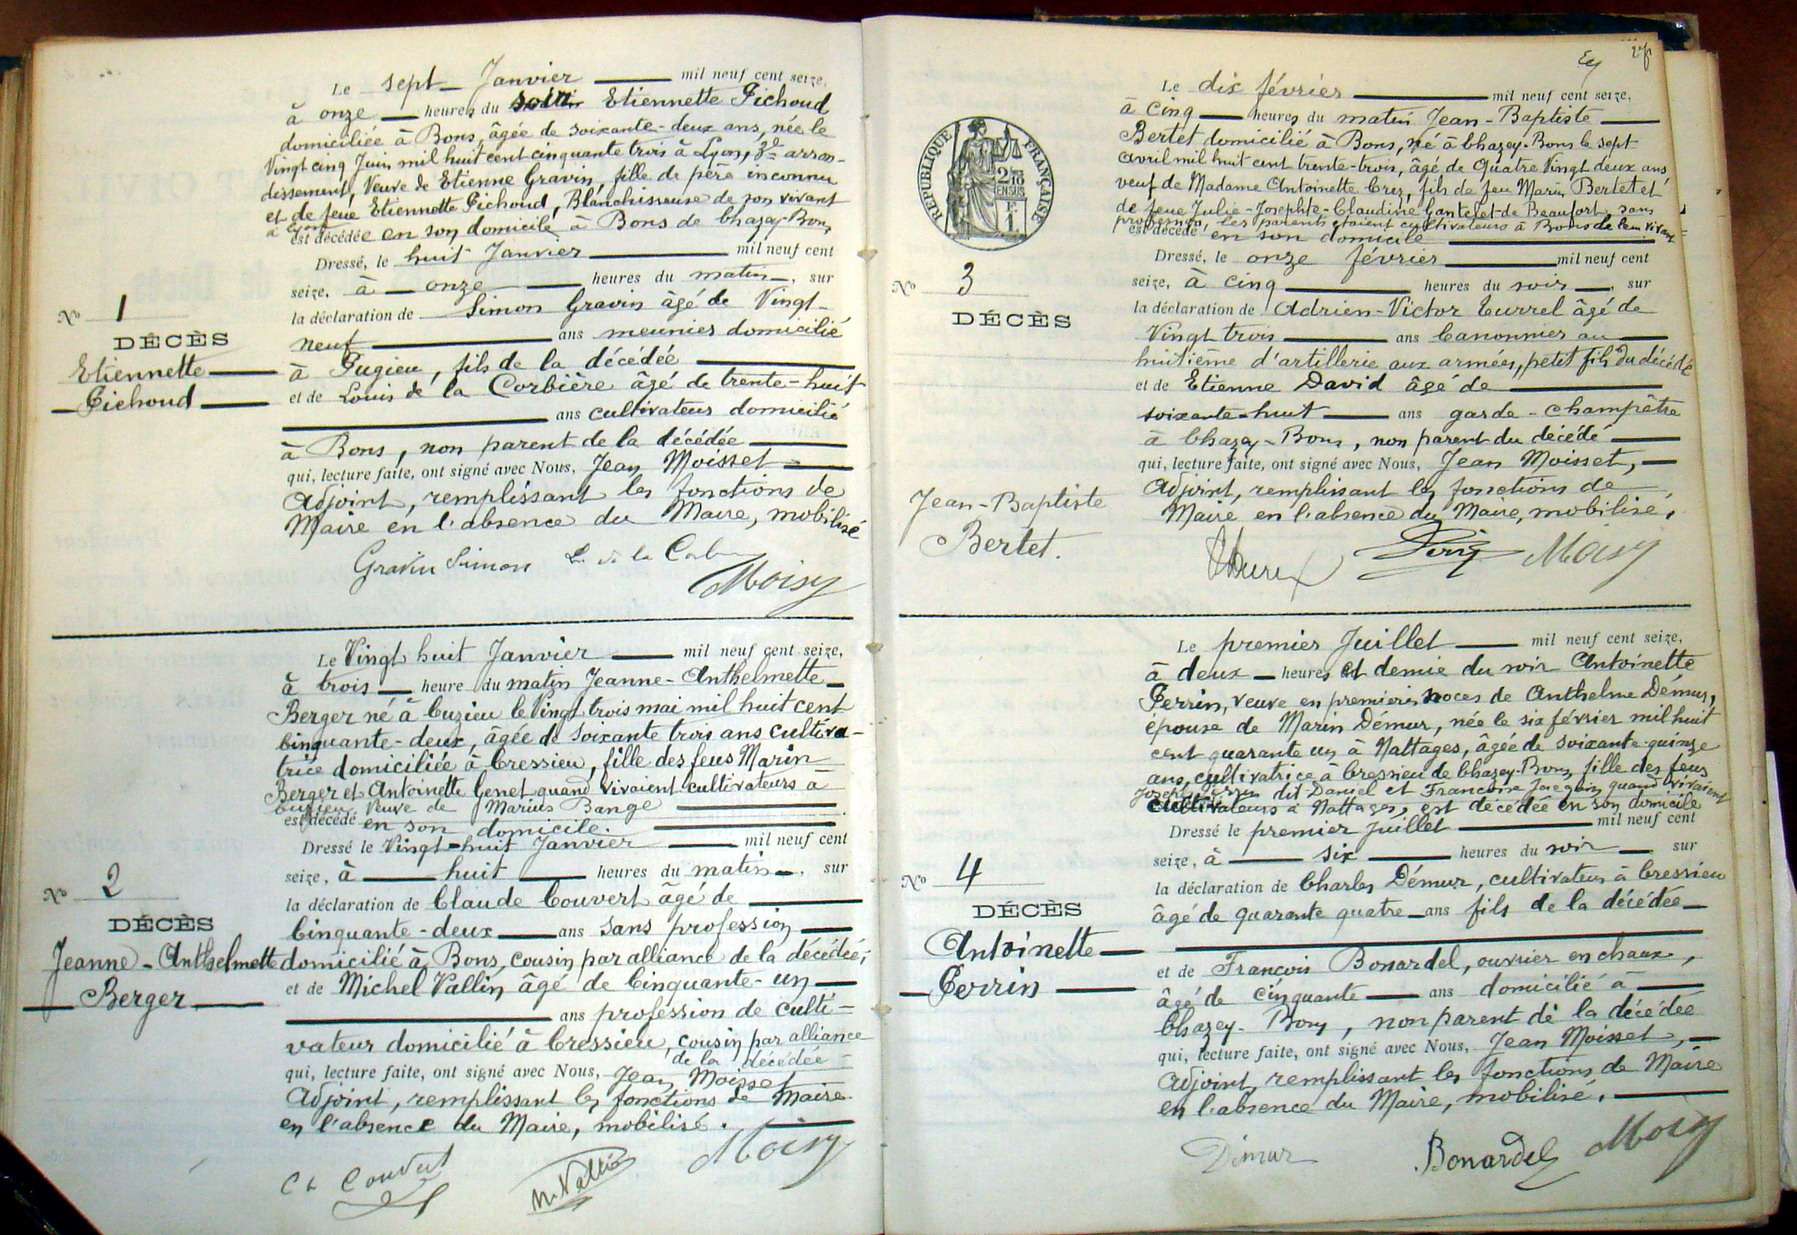 Le sept Janvier mil neuf cent seize,
à onze heures du soir Etiennette Pichoud
domiciliée à Bons, âgée de soixante-deux ans, née le
Vingt cinq Juin mil huit cent cinquante trois à Lyon, 3e arron-
dissement, Veuve de Etienne Gravin, fille de père inconnu
et de feue Etiennette Pichoud, Blanchisseuse de son vivant
à Lyon
est décédée en son domicile à Bons de Chazey-Bons
Dressé, le huit Janvier mil neuf cent
seize, à onze heures du matin, sur
la déclaration de Simon Gravin âgé de Vingt-
neuf ans meunier domicilié
à Pugieu, fils de la décédée
et de Louis de la Corbière âgé de trente-huit
ans cultivateur domicilié
à Bons, non parent de la décédée
qui, lecture faite, ont signé avec Nous, Jean Moisset
Adjoint, remplissant les fonctions de
Maire en l'absence du Maire, mobilisé
Gravin Simon L. de la Corb
Moisy
No 1
DÉCÈS
Etiennette
Pichoud
Le Vingt huit Janvier mil neuf cent seize,
à trois heure du matin Jeanne-Anthelmette
Berger né à Cuzieu le Vingt trois mai mil huit cent
Cinquante-deux, âgée de soixante trois ans cultiva-
trice domiciliée à Cressieu, fille des feus Marin
Berger et Antoinette Genet quand vivaient cultivateurs à
Cuzieu, Veuve de Marius Bange
est décédé en son domicile.
Dressé le Vingt-huit Janvier mil neuf cent
seize, à huit heures du matin, sur
la déclaration de Claude Couvert âgé de
Cinquante-deux ans sans profession
domicilié à Bons, cousin par alliance de la décédée,
et de Michel Vallin âgé de Cinquante-un
ans profession de culti-
vateur domicilié à Cressieu, cousin par alliance
de la décédée
qui, lecture faite, ont signé avec Nous, Jean Moisset
Adjoint, remplissant les fonctions de Maire
en l'absence du Maire, mobilisé.
Cl Couvert M. Vallin Moisy
No 2
DÉCÈS
Jeanne-Anthelmette
Berger
RÉPUBLIQUE FRANÇAISE
2/10
EN SUS
Le dix février mil neuf cent seize,
à cinq heures du matin Jean-Baptiste
Bertet domicilié à Bons, né à Chazey-Bons le sept
avril mil huit cent trente-trois, âgé de Quatre Vingt deux ans
veuf de Madame Antoinette Crez, fils de feu Marin Bertet et
de feue Julie-Josephte-Claudine Gantelet de Beaufort, sans
profession, Les parents étaient cultivateurs à Bons de leur vivant
est décédé en son domicile
Dressé, le onze février mil neuf cent
seize, à cinq heures du soir, sur
la déclaration de Adrien-Victor Turrel âgé de
Vingt trois ans Canonnier au
huitième d'artillerie aux armées, petit fils du décédé
et de Etienne David âgé de
soixante-huit ans garde-champêtre
à Chazey-Bons, non parent du décédé
qui, lecture faite, ont signé avec Nous, Jean Moisset,
Adjoint, remplissant les fonctions de
Maire en l'absence du Maire, mobilisé,
Moisy
No 3
DÉCÈS
Jean-Baptiste
Bertet.
Le premier Juillet mil neuf cent seize,
à deux heures et demie du soir Antoinette
Perrin, veuve en premières noces de Anthelme Démur,
épouse de Marin Démur, née le six février mil huit
cent quarante un à Nattages, âgée de soixante-quinze
ans, cultivatrice à Cressieu de Chazey-Bons, fille des feus
Joseph Perrin dit Daniel et Francoise Jacquin quand vivaient
cultivateurs à Nattages, est décédée en son domicile
Dressé le premier Juillet mil neuf cent
seize, à six heures du soir sur
la déclaration de Charles Démur, cultivateur à Cressieu
âgé de quarante quatre ans fils de la décédée
et de Francois Bonardel, ouvrier en chaux,
âgé de cinquante ans domicilié à
Chazey-Bons, non parent de la décédée
qui, lecture faite, ont signé avec Nous, Jean Moisset,
Adjoint, remplissant les fonctions de Maire
en l'absence du Maire, mobilisé.
Démur Bonardel Moisy
No 4
DÉCÈS
Antoinette
Perrin